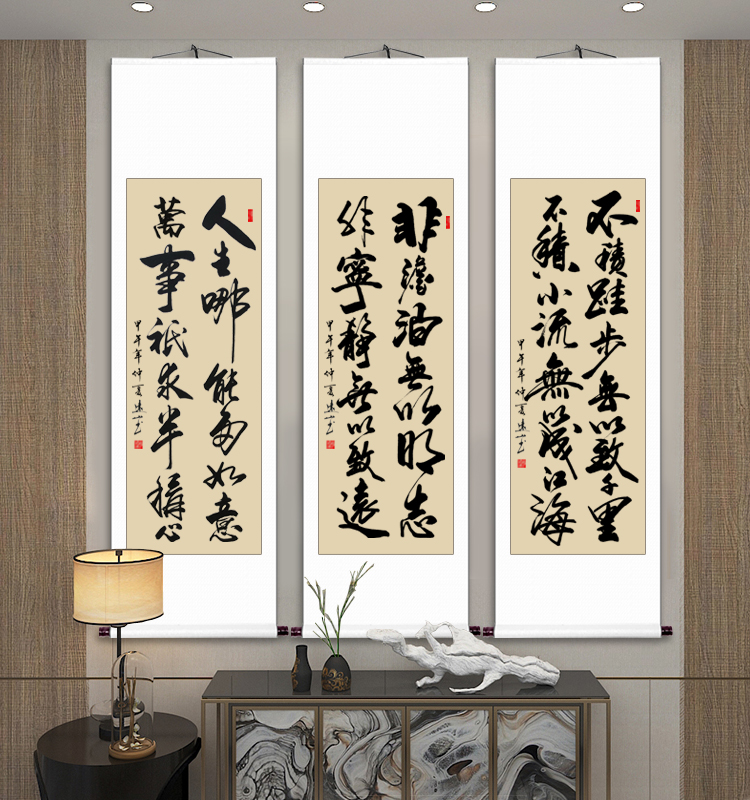 不積跬步无以致千里
不積小流無以成江海
甲午年仲夏
非澹泊無以明志
非寧靜無以致遠
甲午年仲夏
人生哪能多如意
萬事祗求半稱心
甲午年仲夏